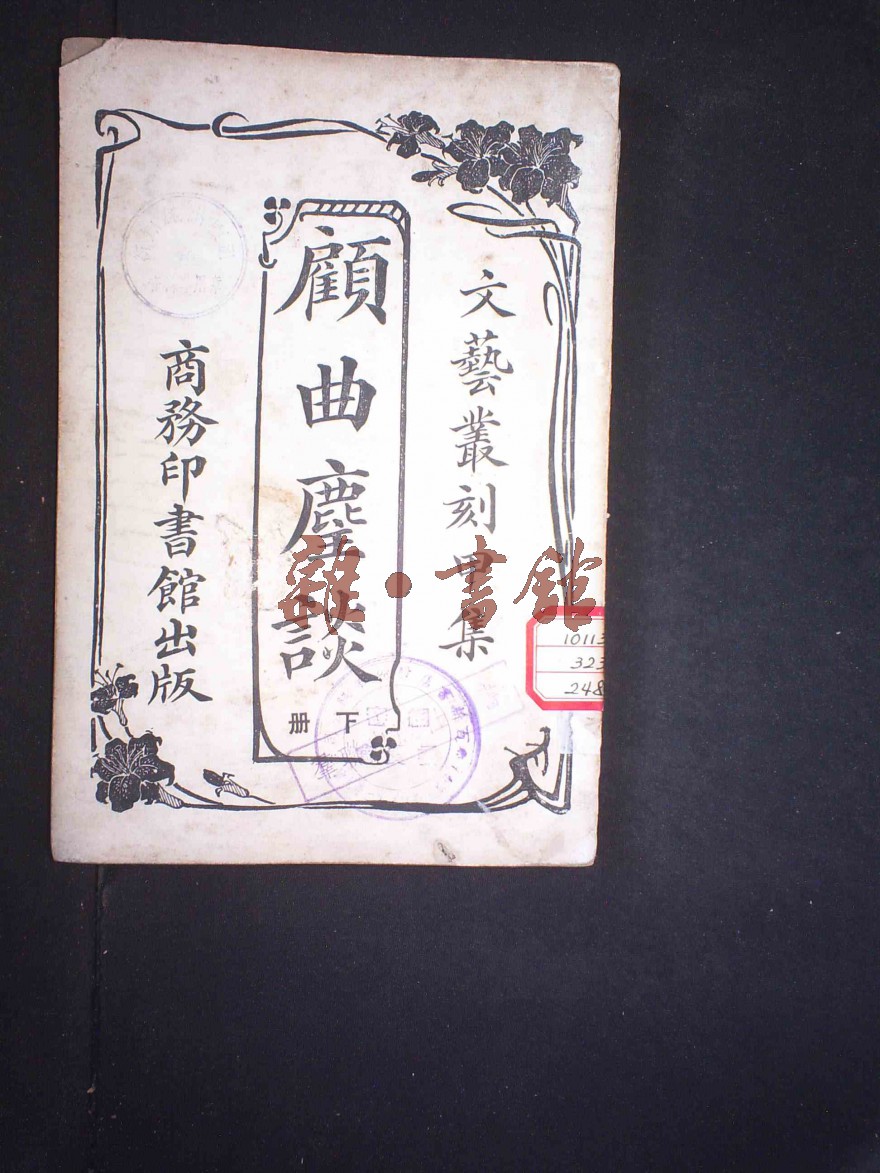 文藝叢刻甲集
顧曲麈談
下册
商務印書館出版
雜·書館
10113
323
248